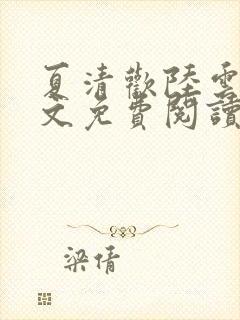 夏清歡陸雲
文免費閱讀
梁倩